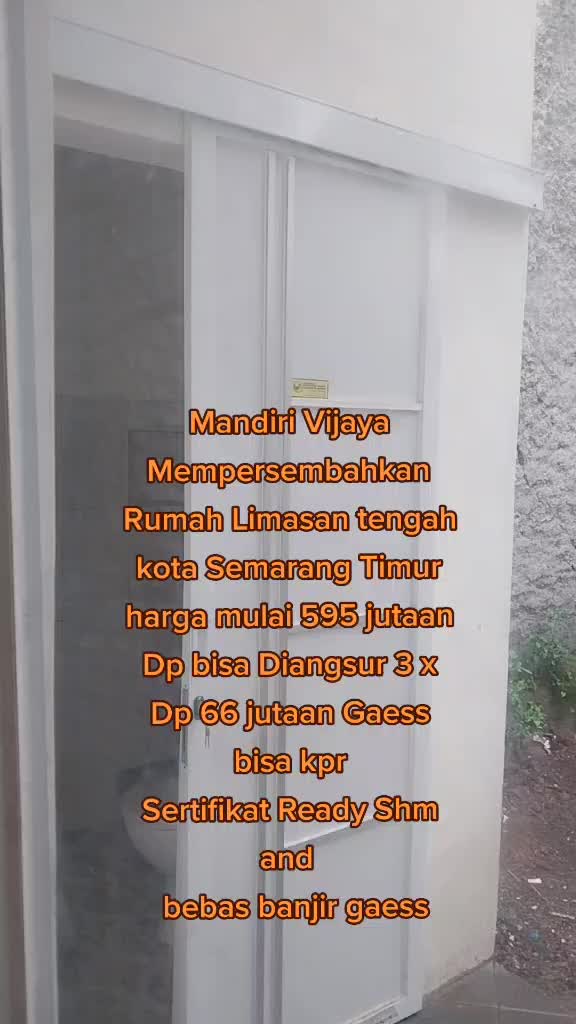 Mandiri Vijaya
Mempersembahkan
Rumah Limasan tengah
kota Semarang Timur
harga mulai 595 jutaan
Dp bisa Diangsur 3 x
Dp 66 jutaan Gaess
bisa kpr
Sertifikat Ready Shm
and
bebas banjir gaess